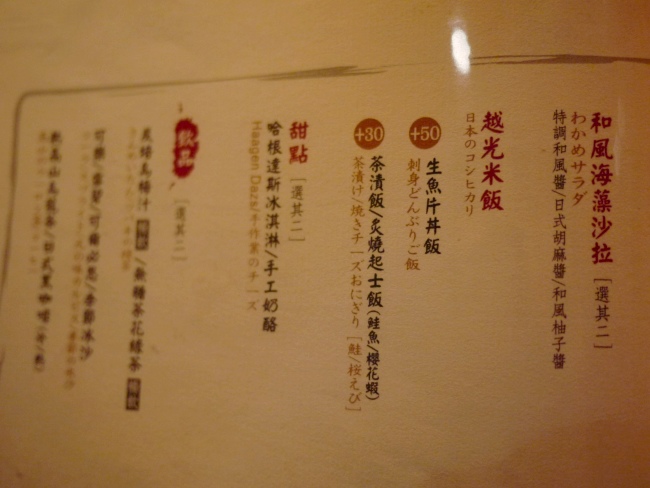 和風海藻沙拉 [選其二]
わかめサラダ
特調和風醬/日式胡麻醬/和風柚子醬
越光米飯
日本のコシヒカリ
+50 生魚片丼飯
刺身どんぶりご飯
+30 茶漬飯/炙燒起士飯(鮭魚/櫻花蝦)
茶漬け/焼きチーズおにぎり [鮭/桜えび]
甜點 [選其二]
哈根達斯冰淇淋/手工奶酪
Haagen Dazs/手作業のチーズ
飲品 [選其二]
黑醋烏梅汁 /無糖茶花綠茶
可樂/雪碧/可爾必思/季節冰沙
軟高山烏龍茶/日式黑咖啡(冷/熱)